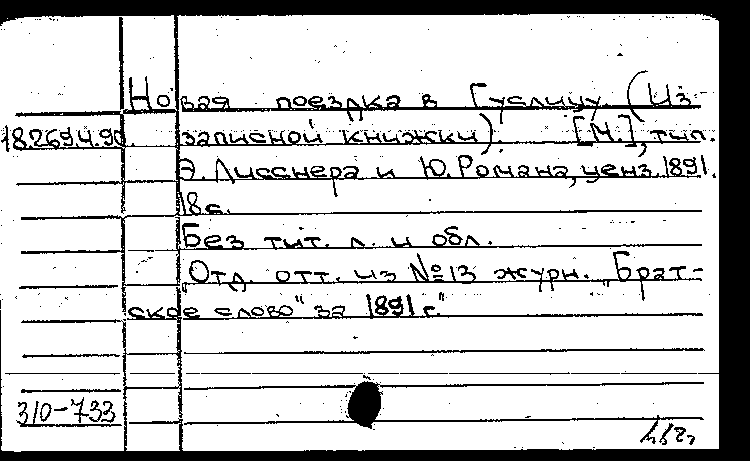 Новая поездка в Гуслицу. (Из
18.269.4.90. записной книжки). [М.], тип.
Э. Лисснера и Ю. Романа, ценз. 1891.
18 с.
Без тит. л. и обл.
„Отд. отт. из №13 журн. „Брат-
ское слово" за 1891 г."
310-733